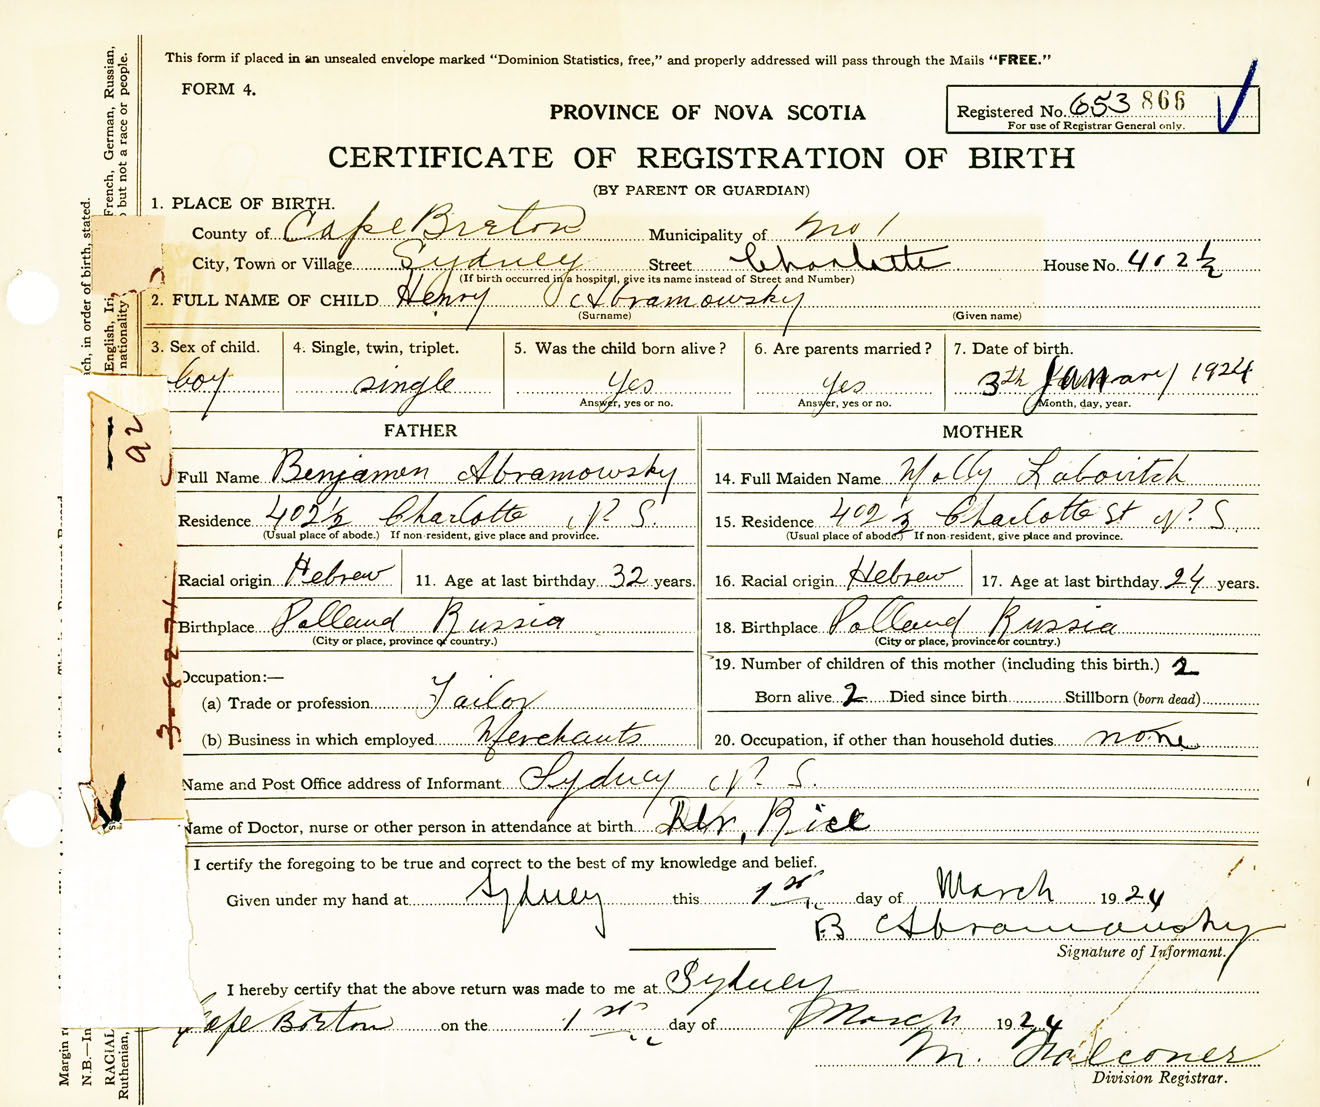 This form if placed in an unsealed envelope marked "Dominion Statistics, free," and properly addressed will pass through the Mails "FREE."
FORM 4.
PROVINCE OF NOVA SCOTIA
Registered No. 653 866
For use of Registrar General only.
CERTIFICATE OF REGISTRATION OF BIRTH
(BY PARENT OR GUARDIAN)
1. PLACE OF BIRTH.
County of Cape Breton Municipality of No 1
City, Town or Village Sydney Street Charlotte House No. 402½
(If birth occurred in a hospital, give its name instead of Street and Number)
2. FULL NAME OF CHILD Henry Abramowsky
(Surname) (Given name)
3. Sex of child. 4. Single, twin, triplet. 5. Was the child born alive? 6. Are parents married? 7. Date of birth.
boy single Yes Yes 3th January 1924
Answer, yes or no. Answer, yes or no. Month, day, year.
FATHER MOTHER
Full Name Benjamen Abramowsky 14. Full Maiden Name Molly Labovitch
Residence 402½ Charlotte N. S. 15. Residence 402½ Charlotte St N. S.
(Usual place of abode.) If non-resident, give place and province. (Usual place of abode.) If non-resident, give place and province.
Racial origin Hebrew 11. Age at last birthday 32 years. 16. Racial origin Hebrew 17. Age at last birthday 24 years.
Birthplace Polland Russia 18. Birthplace Polland Russia
(City or place, province or country.) (City or place, province or country.)
Occupation:— 19. Number of children of this mother (including this birth.) 2
(a) Trade or profession Tailor Born alive 2 Died since birth Stillborn (born dead)
(b) Business in which employed Merchants 20. Occupation, if other than household duties none
Name and Post Office address of Informant Sydney N. S.
Name of Doctor, nurse or other person in attendance at birth Dr. Rice
I certify the foregoing to be true and correct to the best of my knowledge and belief.
Given under my hand at Sydney this 1st day of March 1924
B Abramowsky
Signature of Informant.
I hereby certify that the above return was made to me at Sydney
Cape Borton on the 1st day of March 1924
M. Falconer
Division Registrar.
ach, in order of birth, stated.
French, German, Russian,
but not a race or people.
English, Iri
nationality
92
3-8-27
Margin r
N.B.—In
RACIAL
Ruthenian,